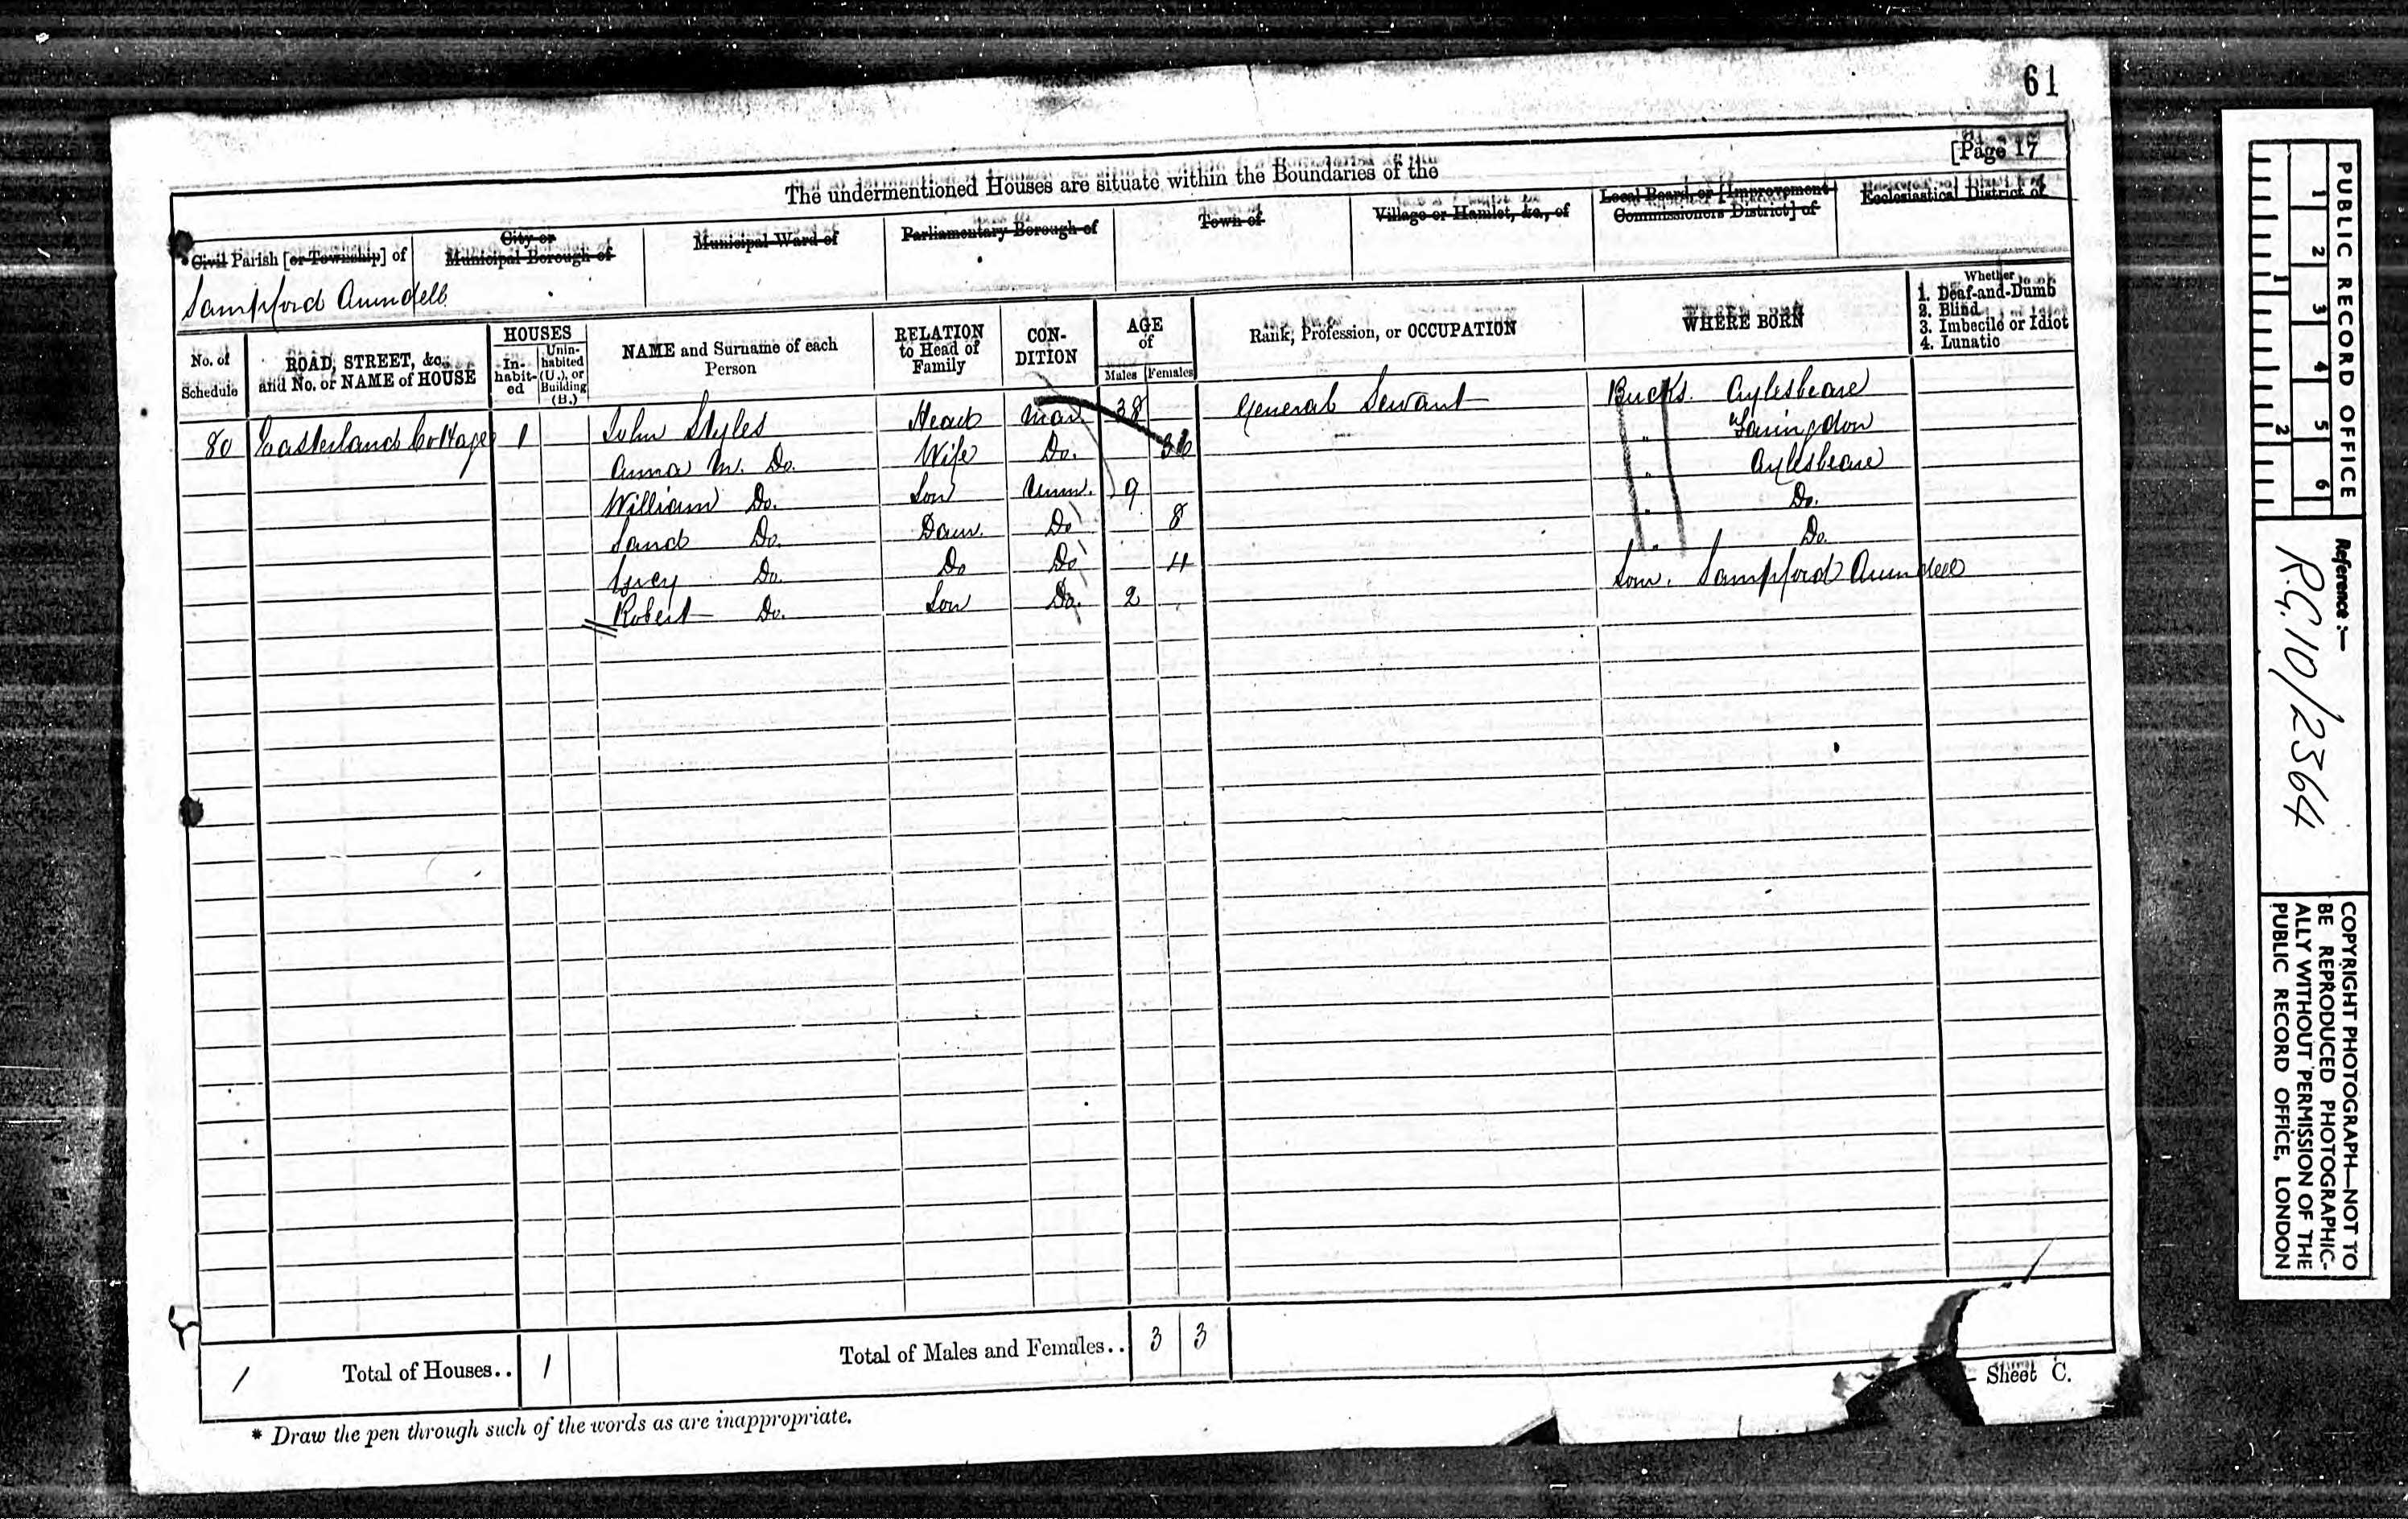 61
[Page 17
The undermentioned Houses are situate within the Boundaries of the
Civil Parish [or Township] of
City or Municipal Borough of
Municipal Ward of
Parliamentary Borough of
Town of
Village or Hamlet, &c., of
Local Board, or [Improvement Commissioners District] of
Ecclesiastical District of
Sampford Arundell
No. of Schedule
ROAD, STREET, &c., and No. or NAME of HOUSE
HOUSES
In-habit-ed
Unin-habited (U.), or Building (B.)
NAME and Surname of each Person
RELATION to Head of Family
CON-DITION
AGE of
Males
Females
Rank, Profession, or OCCUPATION
WHERE BORN
Whether
1. Deaf-and-Dumb
2. Blind
3. Imbecile or Idiot
4. Lunatic
80 Easterlands Cottage 1 John Styles Head Mar. 38 General Servant Bucks. Aylesbeare
Anna M. Do. Wife Do. 36 "
William Do. Son Unm. 9 " Aylesbeare
Do. Daur. Do 8 " Do.
Lucy Do. Do Do 4 " Do.
Robert Do. Son Do. 2 Som. Sampford Arundell
1 Total of Houses.. 1 Total of Males and Females.. 3 3
Sheet C.
* Draw the pen through such of the words as are inappropriate.
PUBLIC RECORD OFFICE
1 2 3 4 5 6
1 2
Reference :—
R.G. 10/2364
COPYRIGHT PHOTOGRAPH—NOT TO
BE REPRODUCED PHOTOGRAPHIC-
ALLY WITHOUT PERMISSION OF THE
PUBLIC RECORD OFFICE, LONDON